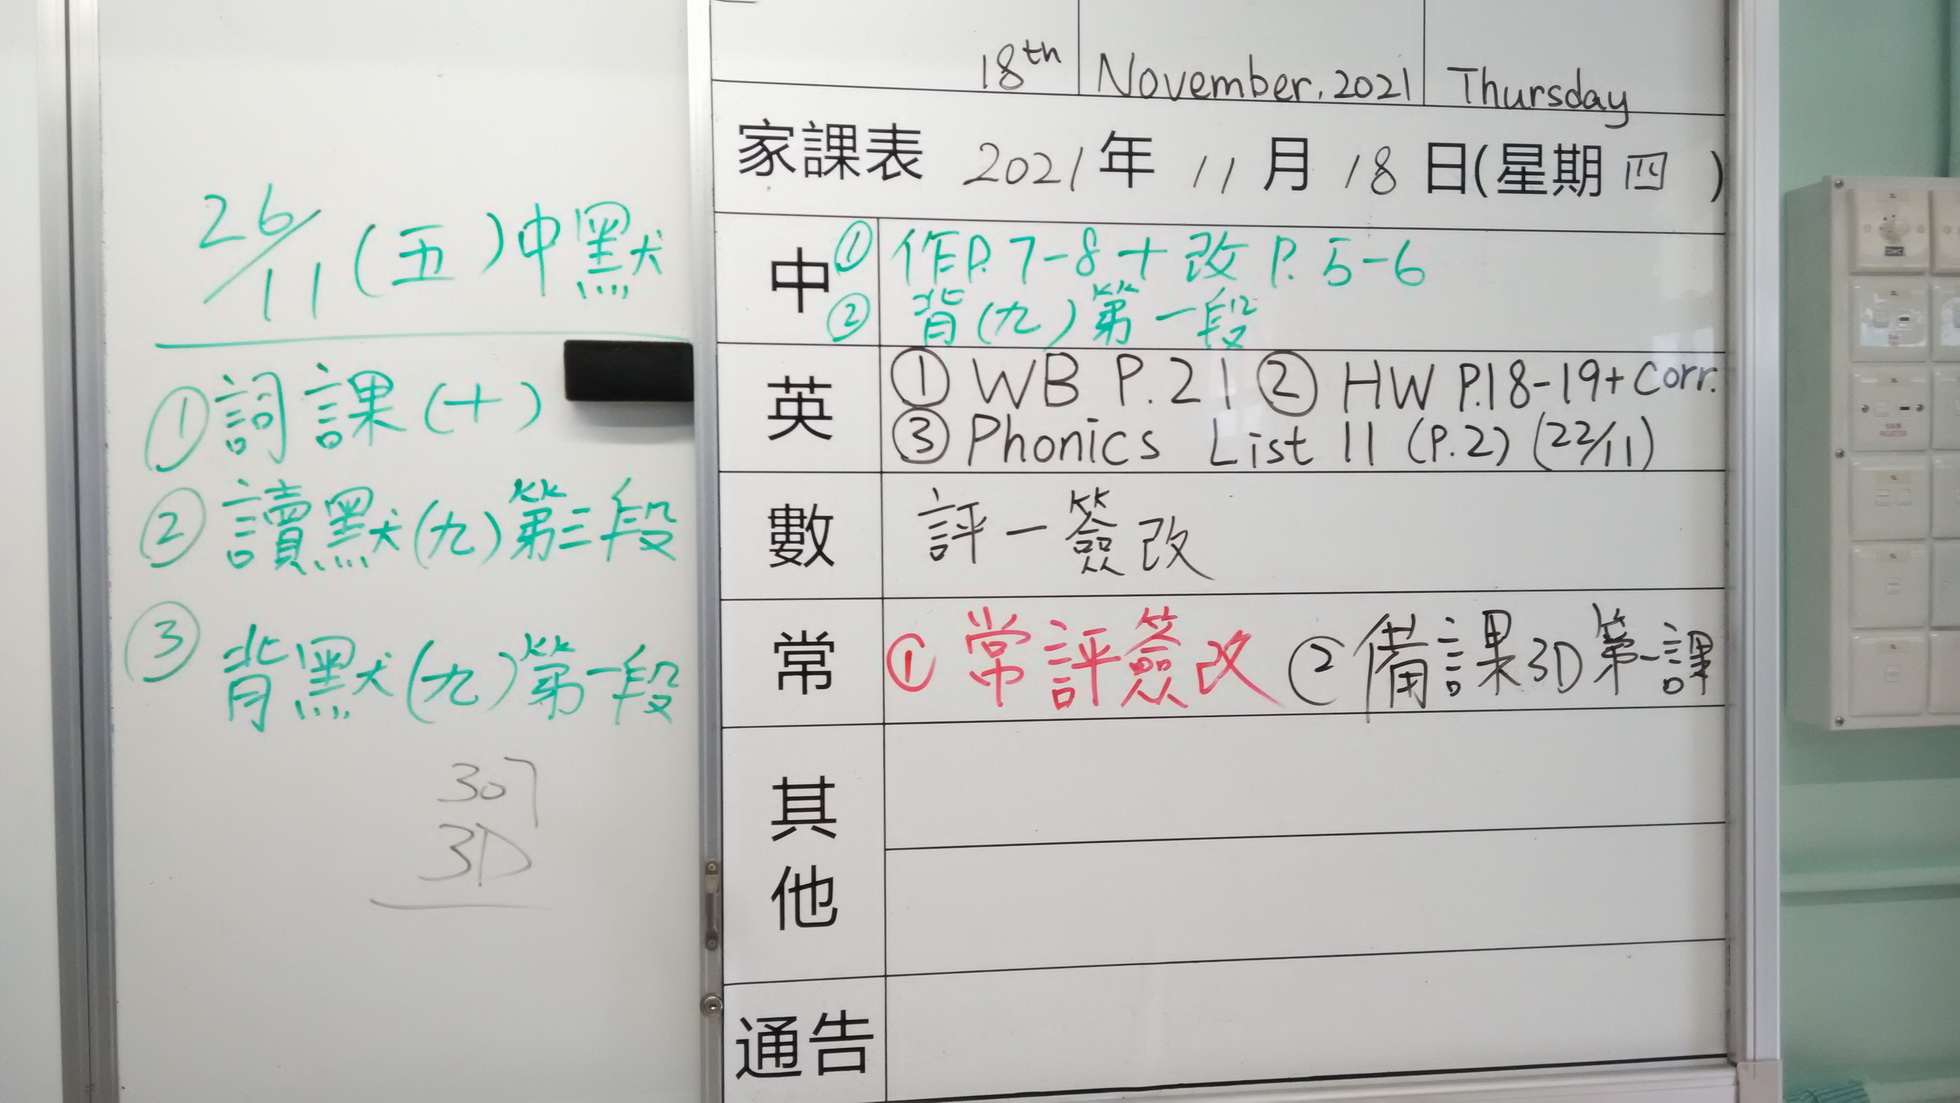 26/11 (五) 中默
① 詞課(十)
② 讀默(九)第三段
③ 背默(九)第一段
307
3D
18th November. 2021 Thursday
家課表 2021年 11月 18日(星期四)
中 ① 作P. 7-8 + 改 P. 5-6
② 背(九)第一段
英 ① WB P.21 ② HW P.18-19+Corr.
③ Phonics List 11 (P.2) (22/11)
數 評一簽改
常 ① 常評簽改 ② 備課3D第一課
其他
通告